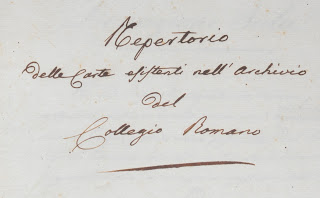 Repertorio
delle Carte esistenti nell'Archivio
del
Collegio Romano